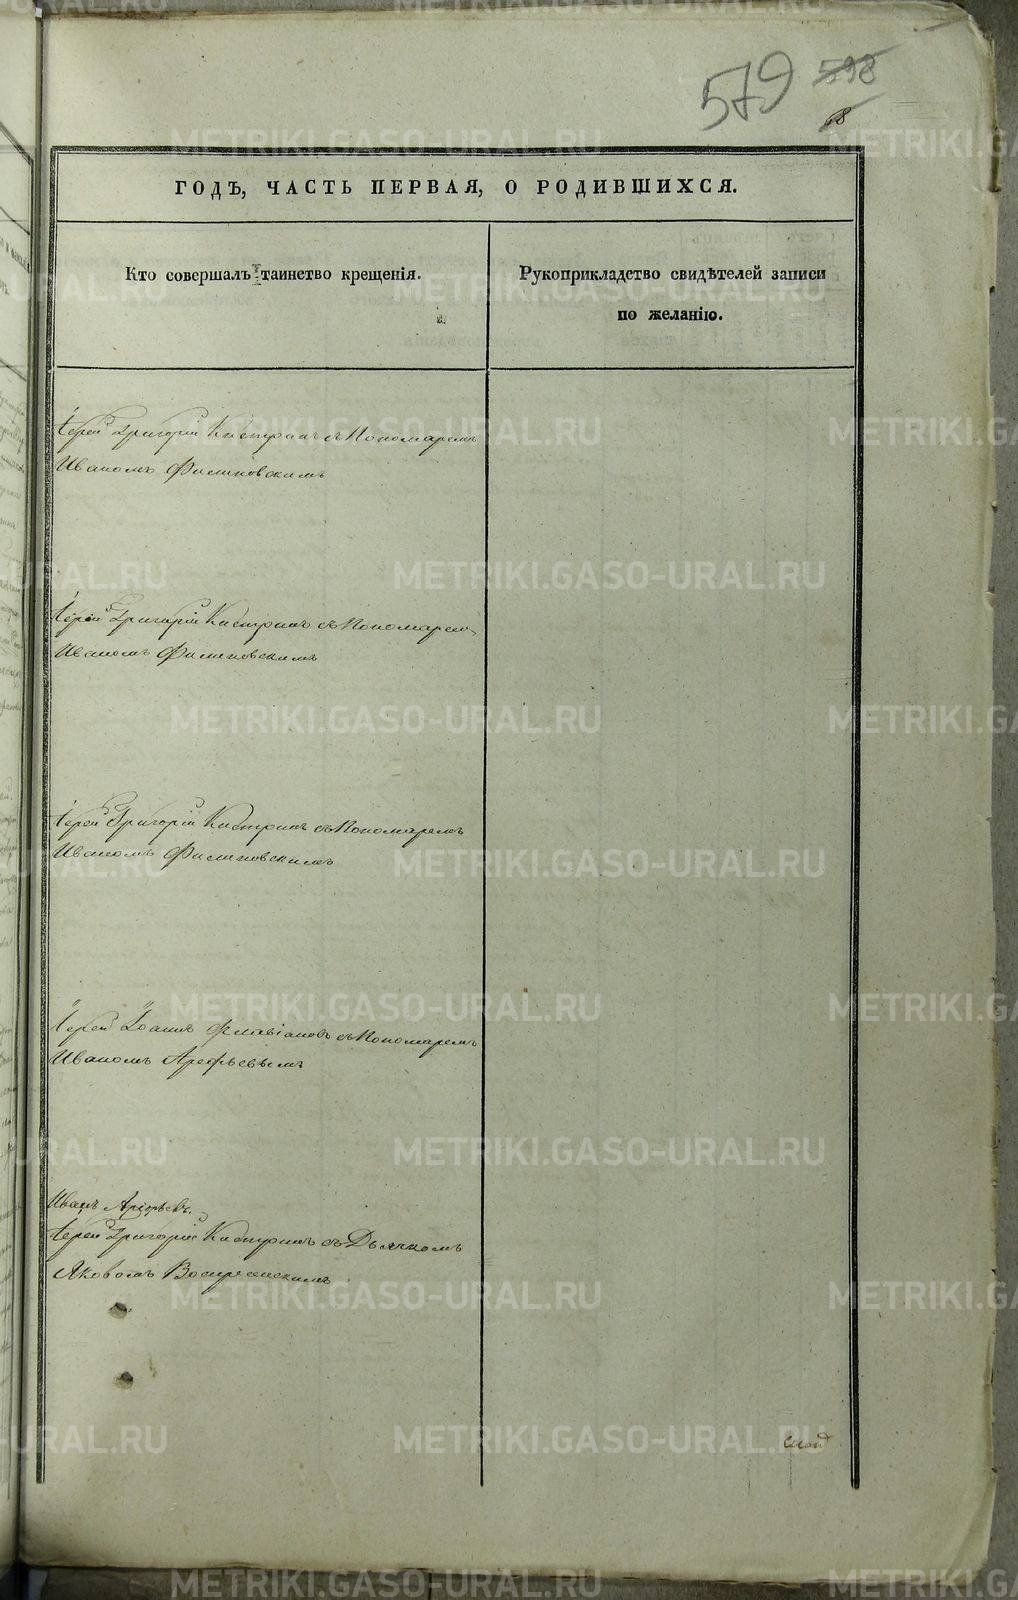 579 598
68
ГОДЪ, ЧАСТЬ ПЕРВАЯ, О РОДИВШИХСЯ.
Кто совершалъ таинство крещенія.
Рукоприкладство свидѣтелей записи
по желанію.
Іерей Григорій Кастринъ съ Пономаремъ
Иваномъ Филиповскимъ
Іерей Григорій Кастринъ съ Пономарем
Иваномъ Филиповскимъ
Іерей Григорій Кастринъ съ Пономаремъ
Иваномъ Филиповскимъ
Іерей Іоаннъ Флавіановъ съ Пономаремъ
Иваномъ Арефьевымъ
Иванъ
Іерей Григорій Кастринъ съ Дьячкомъ
Яковомъ Воскресенскимъ
METRIKI.GASO-URAL.RU